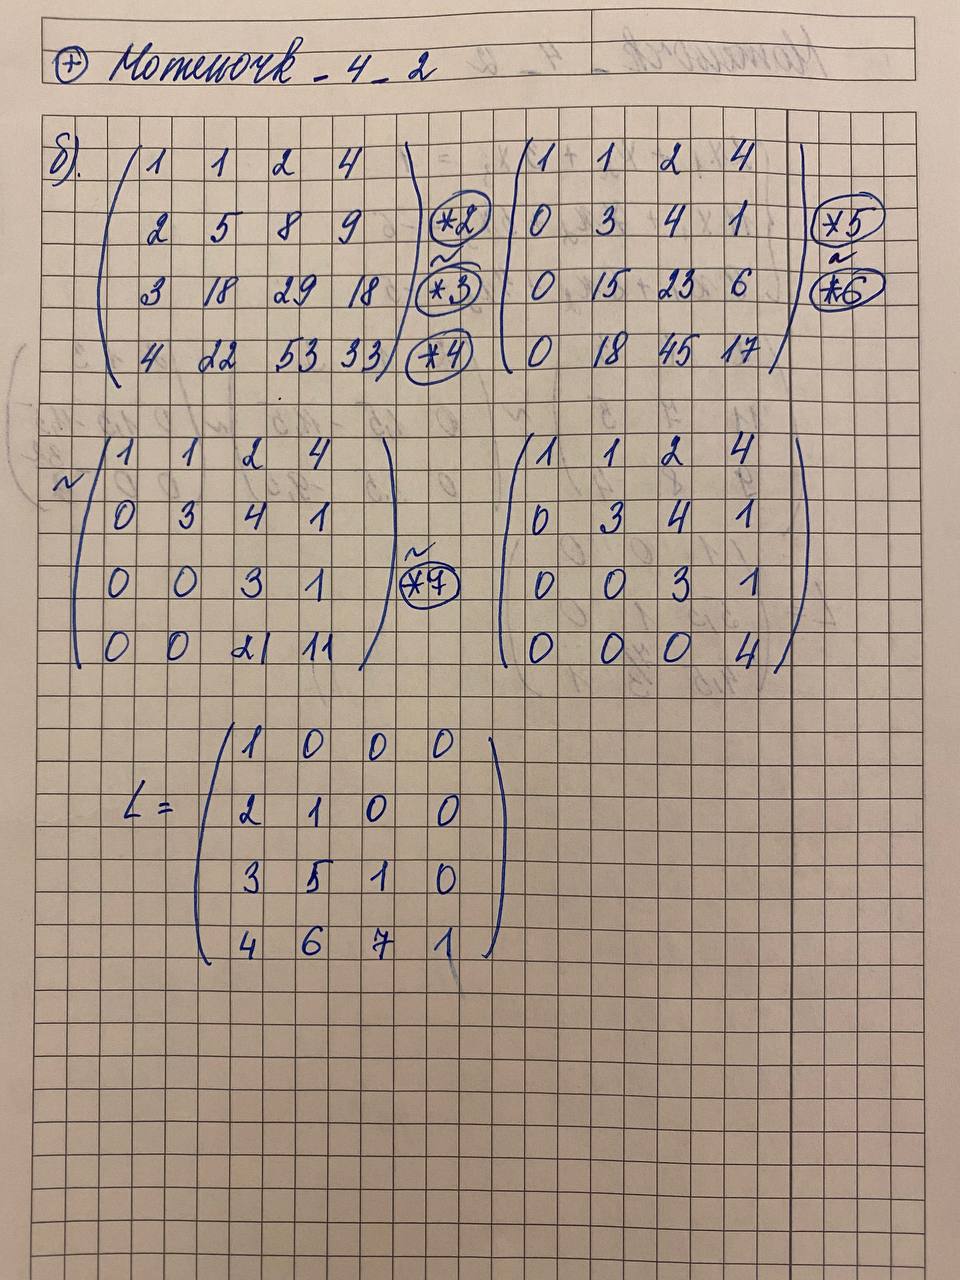 + Homework - 4 - 2
б).
1 1 2 4
2 5 8 9 *2
3 18 29 18 ~ *3
4 22 53 33 *4
1 1 2 4
0 3 4 1 *5
0 15 23 6 ~ *6
0 18 45 17
~
1 1 2 4
0 3 4 1
0 0 3 1 ~ *7
0 0 21 11
1 1 2 4
0 3 4 1
0 0 3 1
0 0 0 4
L =
1 0 0 0
2 1 0 0
3 5 1 0
4 6 7 1